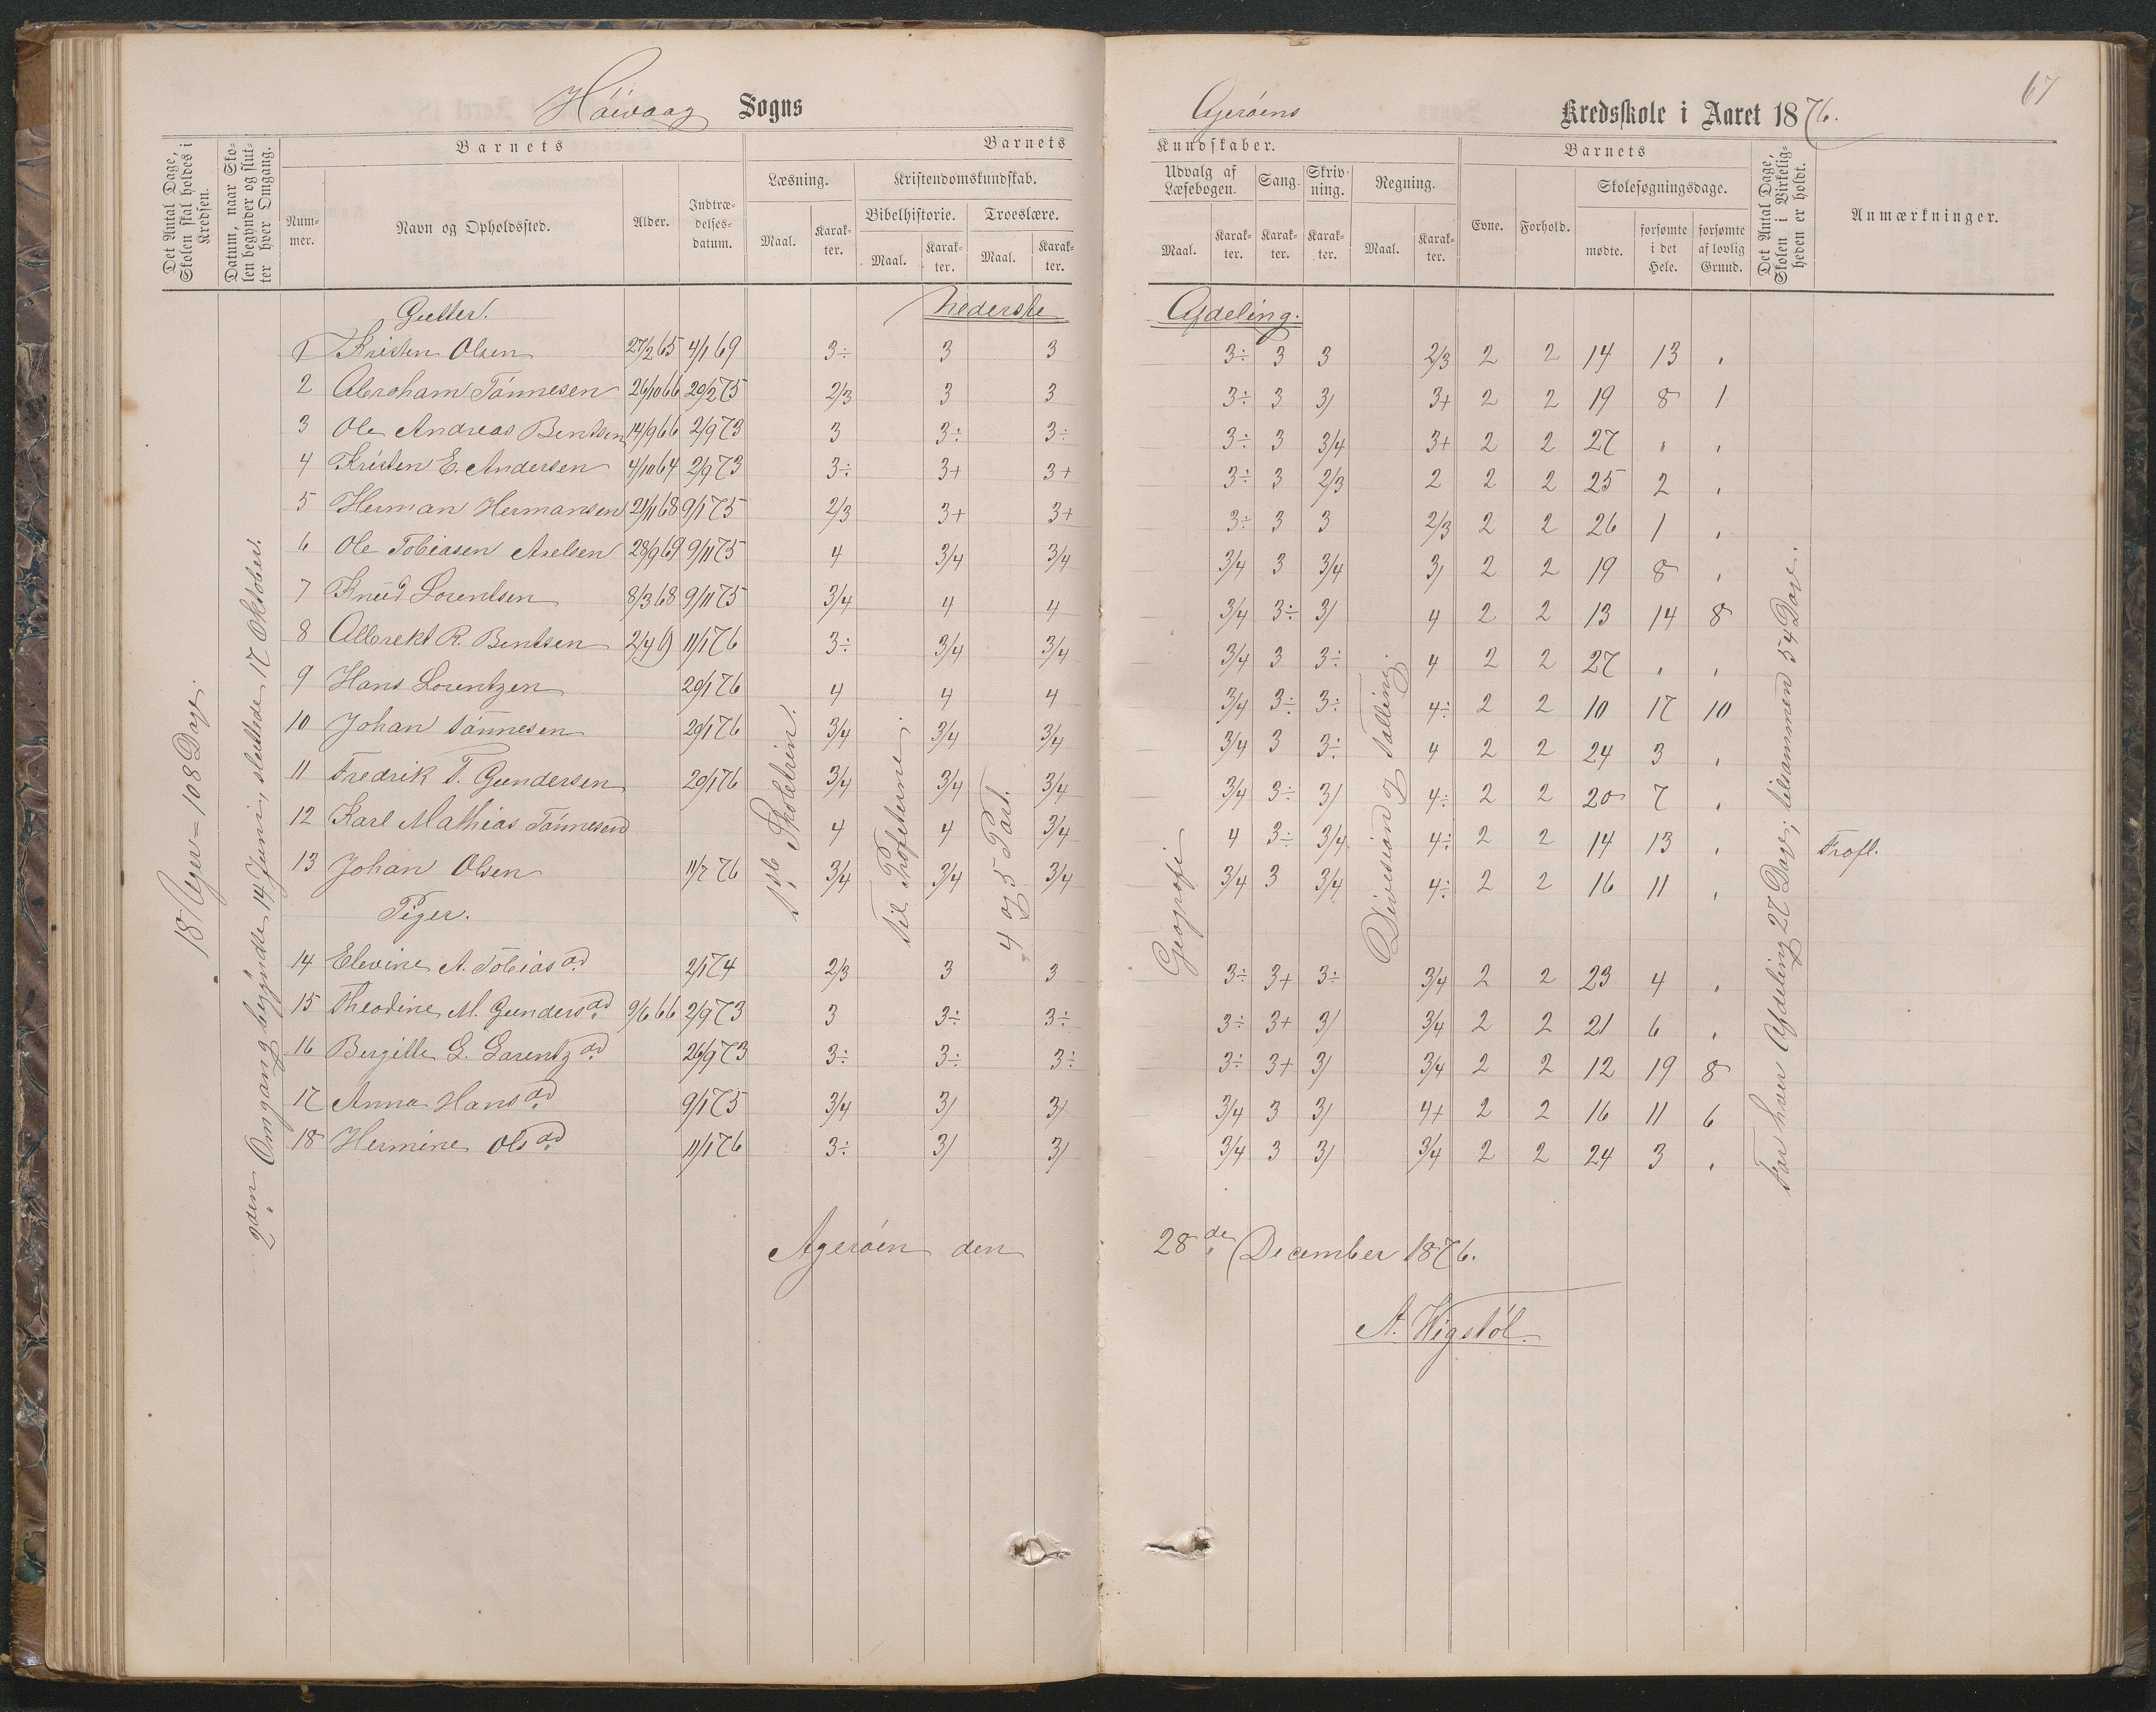 67
Höivaag Sogns Agerøens Kredsskole i Aaret 1876.
Det Antal Dage, Skolen skal holdes i Kredsen.
Datum, naar Skolen begynder og slutter hver Omgang.
Barnets
Nummer.
Navn og Opholdssted.
Alder.
Indtrædelsesdatum.
Barnets Kundskaber.
Læsning.
Maal. Karakter.
Kristendomskundskab.
Bibelhistorie. Troeslære.
Maal. Karakter. Maal. Karakter.
Udvalg af Læsebogen.
Maal. Karakter.
Sang. Karakter.
Skrivning. Karakter.
Regning.
Maal. Karakter.
Barnets
Evne. Forhold.
Skolesøgningsdage.
mødte. forsømte i det Hele. forsømte af lovlig Grund.
Det Antal Dage, Skolen i Virkeligheden er holdt.
Anmærkninger.
18 Uger = 108 Dage.
2den Omgang begyndte 14 Juni, sluttede 17 Oktober.
Gutter. Nederste Afdeling.
1 Kristen Olsen 27/2 65 4/1 69 3÷ 3 3 3÷ 3 3 2/3 2 2 14 13 "
2 Abraham Tönnesen 26/10 66 20/2 75 2/3 3 3 3÷ 3 3/ 3+ 2 2 19 8 1
3 Ole Andreas Bentsen 14/9 66 2/9 73 3 3÷ 3÷ 3÷ 3 3/4 3+ 2 2 27 " "
4 Kristen E. Andersen 4/10 64 2/9 73 3÷ 3+ 3+ 3÷ 3 2/3 2 2 2 25 2 "
5 Herman Hermansen 21/11 68 9/1 75 2/3 3+ 3+ 3÷ 3 3 2/3 2 2 26 1 "
6 Ole Tobiasen Axelsen 28/9 69 9/11 75 4 3/4 3/4 3/4 3 3/4 3/ 2 2 19 8 "
7 Knud Lorentsen 8/3 68 9/11 75 3/4 4 4 3/4 3÷ 3/ 4 2 2 13 14 8
8 Albrekt R. Bentsen 11/1 76 3÷ 3/4 3/4 3/4 3 3÷ 4 2 2 27 " "
9 Hans Lorentzen 29/1 76 4 4 4 3/4 3÷ 3÷ 4÷ 2 2 10 17 10
10 Johan Tönnesen 29/1 76 3/4 3/4 3/4 3/4 3 3÷ 4 2 2 24 3 "
11 Fredrik T. Gundersen 29/1 76 3/4 3/4 3/4 3/4 3÷ 3/ 4÷ 2 2 20 7 "
12 Karl Mathias Tönnesen 4 4 3/4 4 3÷ 3/4 4÷ 2 2 14 13 "
13 Johan Olsen 11/7 76 3/4 3/4 3/4 3/4 3 3/4 4÷ 2 2 16 11 "
Piger.
14 Elevine A. Tobiasd. 2/1 74 2/3 3 3 3÷ 3+ 3÷ 3/4 2 2 23 4 "
15 Theodine M. Gundersd. 9/6 66 2/9 73 3 3÷ 3÷ 3÷ 3+ 3/ 3/4 2 2 21 6 "
16 Bergitte G. Lorentzd. 26/9 73 3÷ 3÷ 3÷ 3÷ 3+ 3/ 3/4 2 2 12 19 8
17 Anna Hansd. 9/1 75 3/4 3/ 3/ 3/4 3 3/ 4+ 2 2 16 11 6
18 Hermine Olsd. 11/1 76 3÷ 3/ 3/ 3/4 3 3/ 3/4 2 2 24 3 "
1ste Skoletrin.
Til Profeterne.
4 og 5 Part.
Geografi
Division og Talling.
For hver Afdeling 27 Dage; tilsammen 54 Dage.
Agerøen den 28de December 1876.
A. Vigstöl.